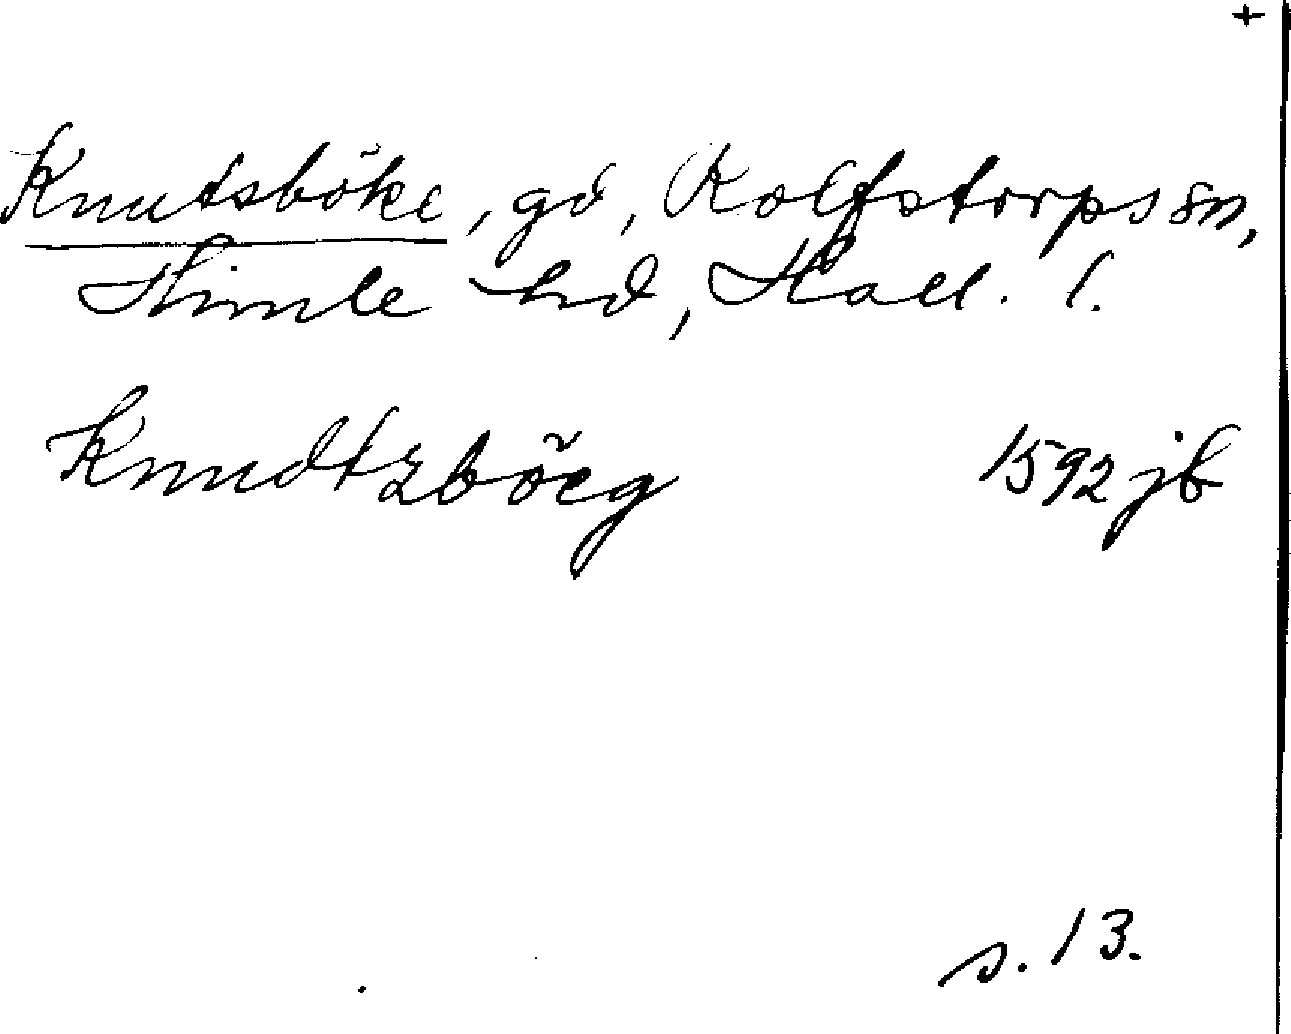 +
Knutsböke, gd, Rolfstorps sn,
Himle hd, Hall. l.
Knudtzböeg 1592 jb
s. 13.